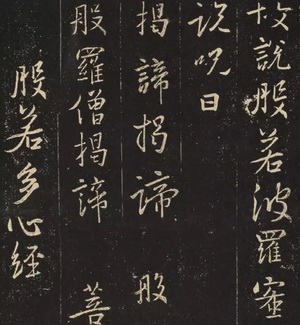 故說般若波羅蜜
說呪曰
揭諦揭諦 般
般羅僧揭諦 菩
般若多心經